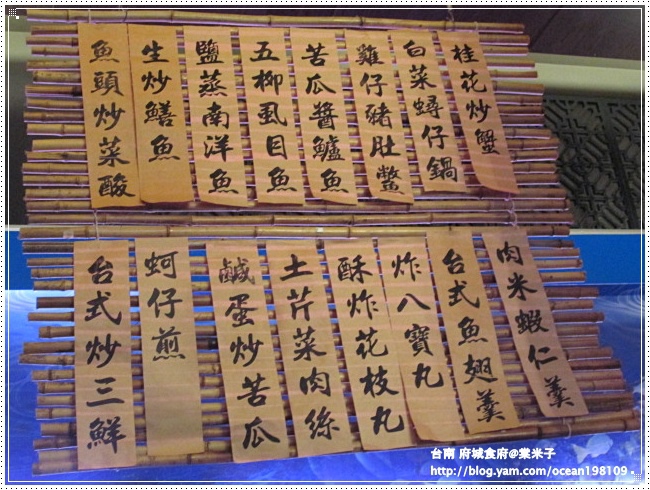 桂花炒蟹
白菜蟳仔鍋
雞仔豬肚鱉
苦瓜醬鱸魚
五柳虱目魚
鹽蒸南洋魚
生炒鱔魚
魚頭炒菜酸
肉米蝦仁羹
台式魚翅羹
炸八寶丸
酥炸花枝丸
土芹菜肉絲
鹹蛋炒苦瓜
蚵仔煎
台式炒三鮮
台南 府城食府@棠米子
http://blog.yam.com/ocean198109